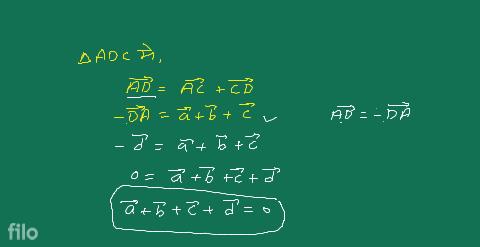 △ADC में,
AD⃗ = AC⃗ + CD⃗
-DA⃗ = a⃗ + b⃗ + c⃗ ✓
AD⃗ = -DA⃗
-d⃗ = a⃗ + b⃗ + c⃗
0 = a⃗ + b⃗ + c⃗ + d⃗
a⃗ + b⃗ + c⃗ + d⃗ = 0
filo